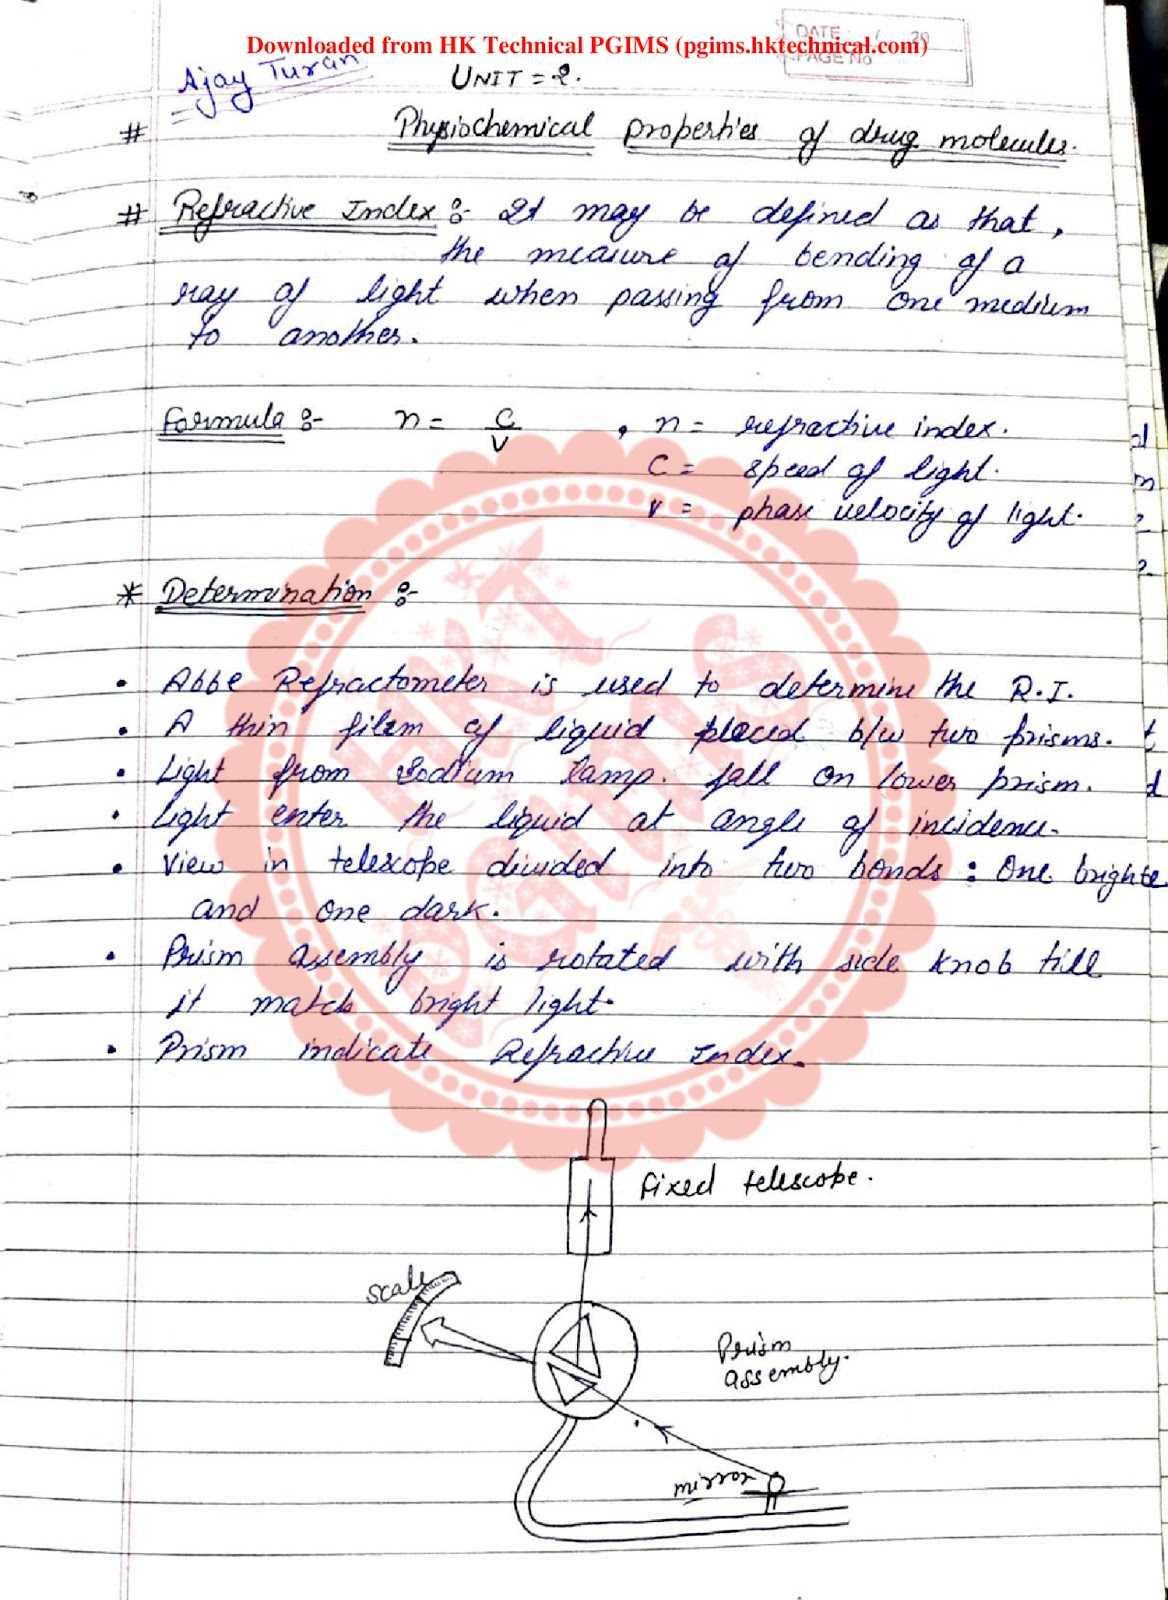 Downloaded from HK Technical PGIMS (pgims.hktechnical.com)
DATE / 20
PAGE No
Ajay Turan
UNIT = 2.
# Physiochemical properties of drug molecules.
# Refractive Index :- It may be defined as that,
the measure of bending of a
ray of light when passing from one medium
to another.
Formula :- n = C/V , n = refractive index.
C = speed of light.
V = phase velocity of light.
* Determination :-
• Abbe Refractometer is used to determine the R.I.
• A thin film of liquid placed b/w two prisms.
• Light from Sodium lamp. fall on lower prism.
• Light enter the liquid at angle of incidence.
• View in telescope divided into two bonds : One brighte
and one dark.
• Prism assembly is rotated with side knob till
it match bright light.
• Prism indicate Refractive Index.
fixed telescope.
scale
Prism
assembly.
mirror